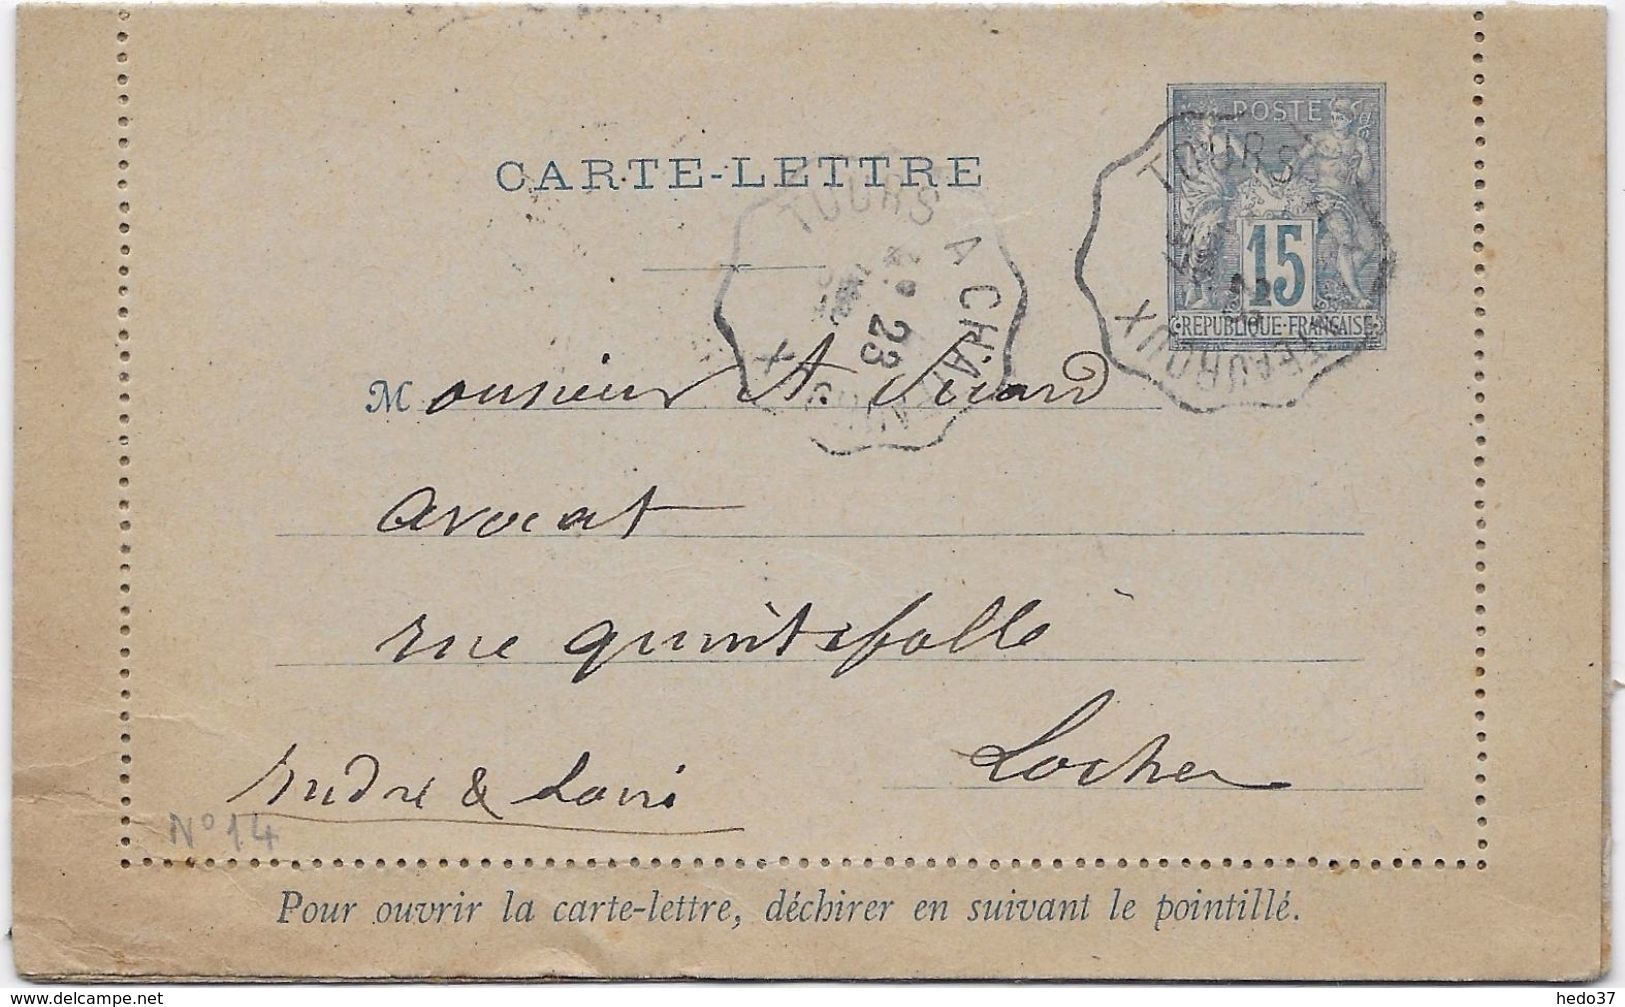 POSTE
CARTE-LETTRE
TOURS A CHATEAUROUX
23
TOURS A CHATEAUROUX
15
REPUBLIQUE FRANÇAISE
Monsieur A.
avocat
rue quintefolle
Loches
Indre & Loire
N° 14
Pour ouvrir la carte-lettre, déchirer en suivant le pointillé.
www.delcampe.net
hedo37